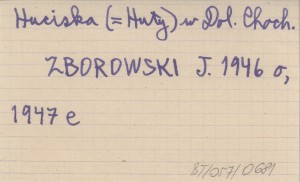 Huciska (= Huty) w Dol. Choch.
ZBOROWSKI J. 1946 o,
1947 e
BT/057/0681